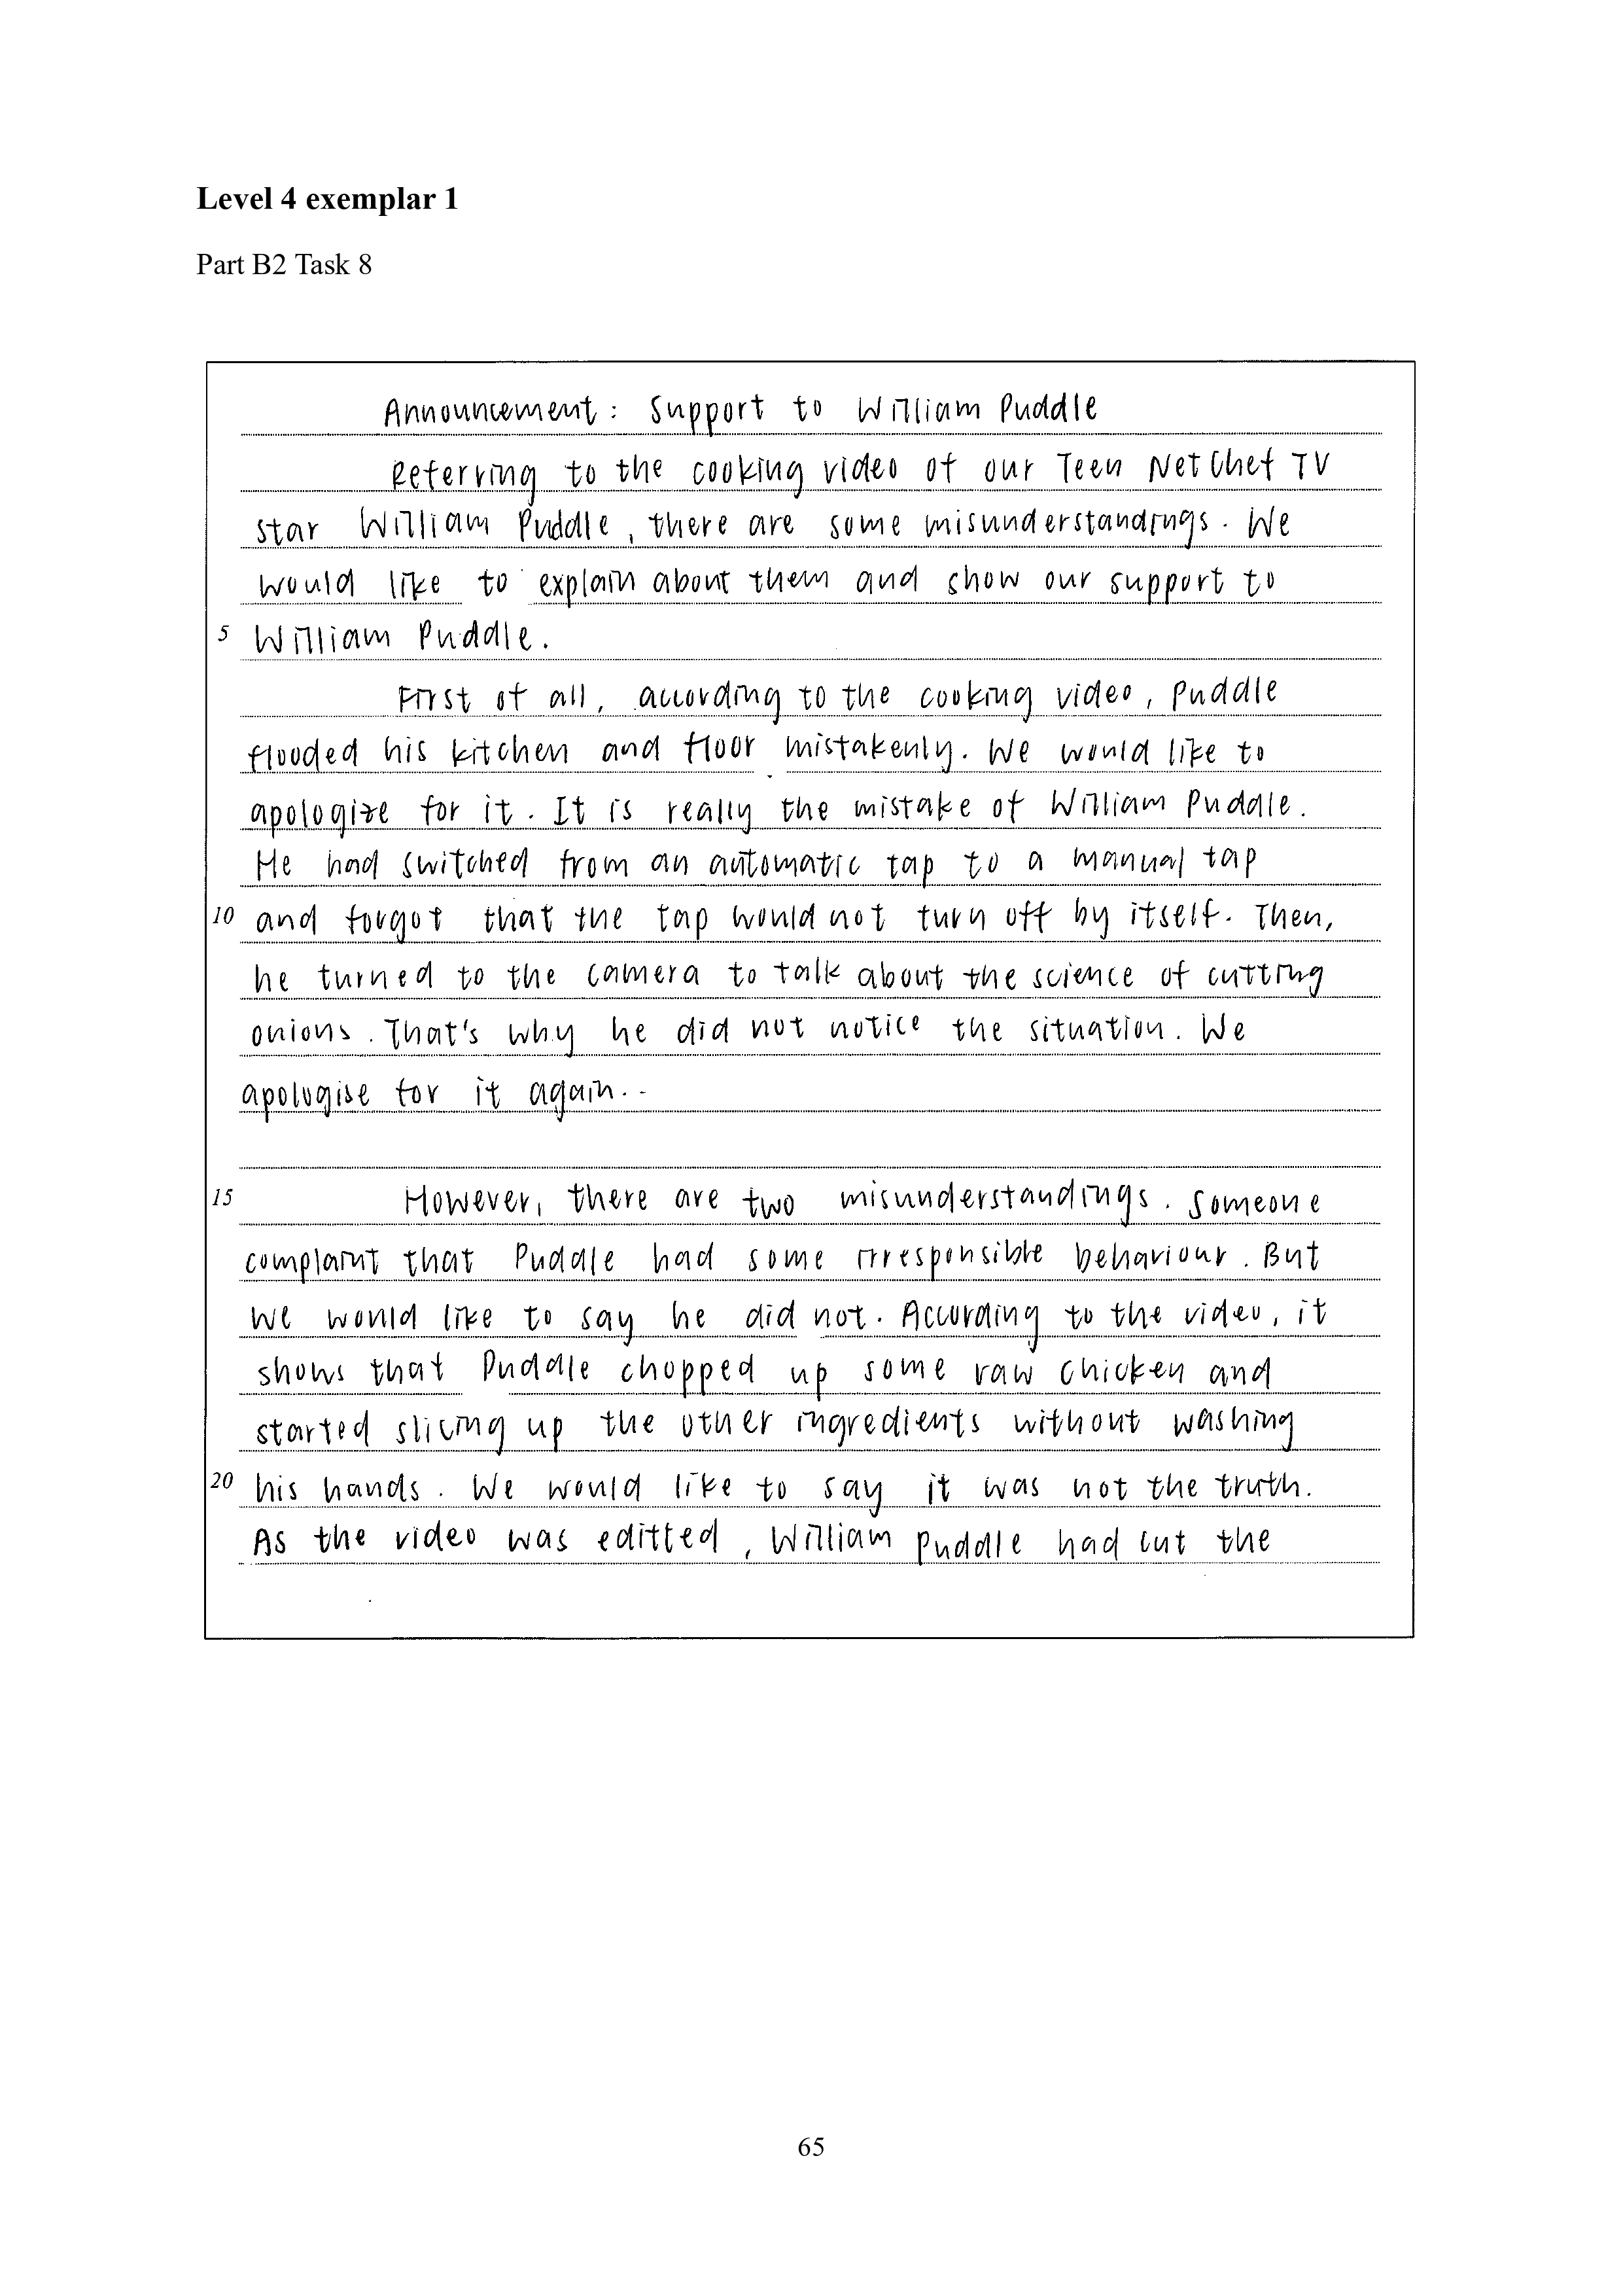 Level 4 exemplar 1
Part B2 Task 8
Announcement : Support to William Puddle
Referring to the cooking video of our Teen NetChef TV
star William Puddle, there are some misunderstandings. We
would like to explain about them and show our support to
5 William Puddle.
First of all, according to the cooking video, Puddle
flooded his kitchen and floor mistakenly. We would like to
apologize for it. It is really the mistake of William Puddle.
He had switched from an automatic tap to a manual tap
10 and forgot that the tap would not turn off by itself. Then,
he turned to the camera to talk about the science of cutting
onions. That's why he did not notice the situation. We
apologise for it again.
15 However, there are two misunderstandings. Someone
complaint that Puddle had some irresponsible behaviour. But
we would like to say he did not. According to the video, it
shows that Puddle chopped up some raw chicken and
started slicing up the other ingredients without washing
20 his hands. We would like to say it was not the truth.
As the video was editted, William Puddle had cut the
65